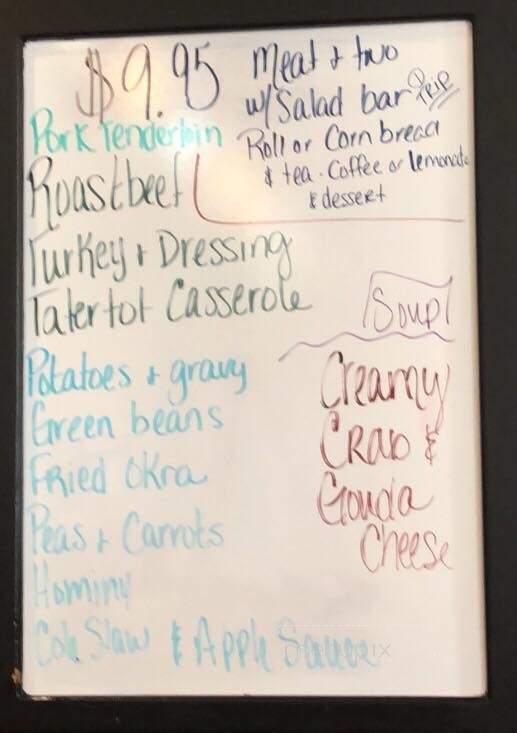 $9.95
Meat & two
w/ Salad bar 1 Trip
Roll or Corn bread
& tea. Coffee or lemonade
& dessert
Pork Tenderloin
Roastbeef
Turkey & Dressing
Tatertot Casserole
Potatoes & gravy
Green beans
Fried Okra
Peas & Carrots
Hominy
Cole Slaw & Apple Sauce
Soup
Creamy
Crab &
Gouda
Cheese